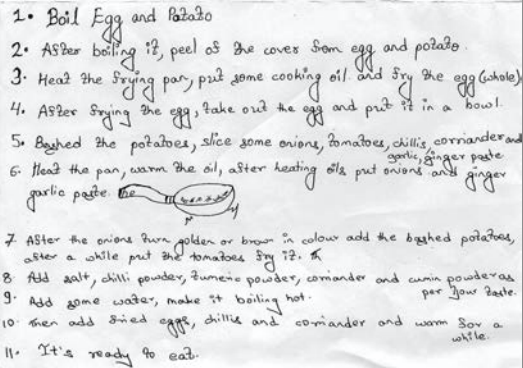 1. Boil Egg and Potato
2. After boiling it, peel of the cover from egg and potato.
3. Heat the frying pan, put some cooking oil and fry the egg (whole)
4. After frying the egg, take out the egg and put it in a bowl.
5. Bashed the potatoes, slice some onions, tomatoes, chillis, corriander and
garlic, ginger paste
6. Heat the pan, warm the oil, after heating oils put onions and ginger
garlic paste. the
7. After the onions turn golden or brown in colour add the bashed potatoes,
after a while put the tomatoes fry it.
8. Add salt, chilli powder, tumeric powder, corriander and cumin powder as
per your taste.
9. Add some water, make it boiling hot.
10. Then add fried eggs, chillis and corriander and warm for a
while.
11. It's ready to eat.